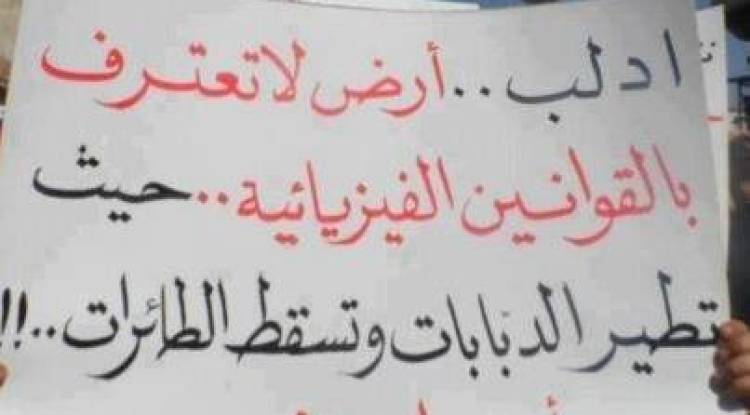 ادلب..أرض لاتعترف
بالقوانين الفيزيائية..حيث
تطير الدبابات وتسقط الطائرات..!!